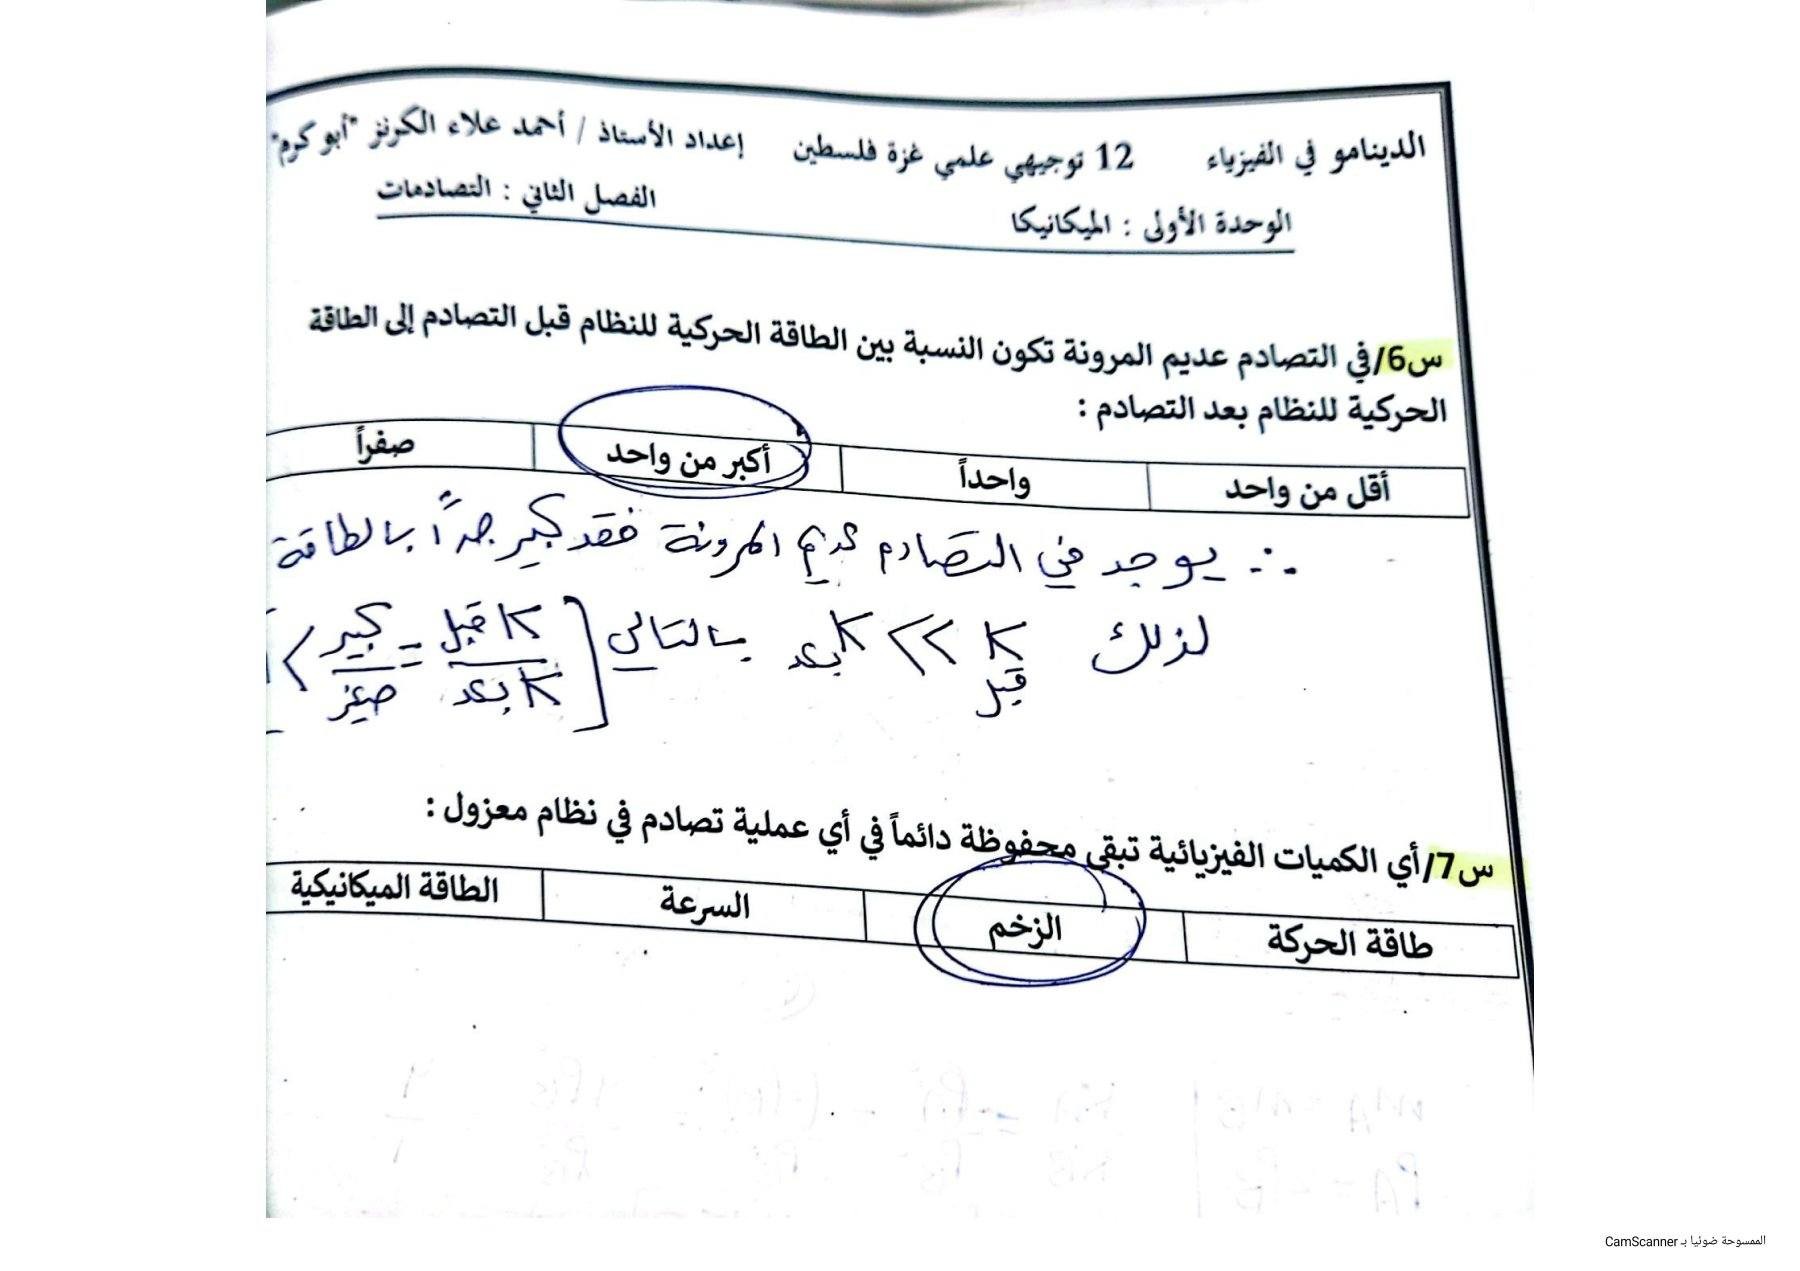 الدينامو في الفيزياء 12 توجيهي علمي غزة فلسطين إعداد الأستاذ / أحمد علاء الكرنز "أبو كرم"
الوحدة الأولى : الميكانيكا الفصل الثاني : التصادمات
س6/في التصادم عديم المرونة تكون النسبة بين الطاقة الحركية للنظام قبل التصادم إلى الطاقة
الحركية للنظام بعد التصادم :
أقل من واحد واحداً أكبر من واحد صفراً
∴ يوجد في التصادم عديم المرونة فقد كبير جداً بالطاقة
لذلك K قبل >> K بعد بالتالي [K قبل / K بعد = كبير / صغير > 1]
س7/أي الكميات الفيزيائية تبقى محفوظة دائماً في أي عملية تصادم في نظام معزول :
طاقة الحركة الزخم السرعة الطاقة الميكانيكية
الممسوحة ضوئيا بـ CamScanner